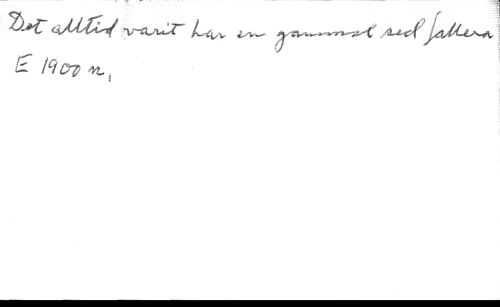 Det alltid varit har en gammal sed fallera
E 1900 n,